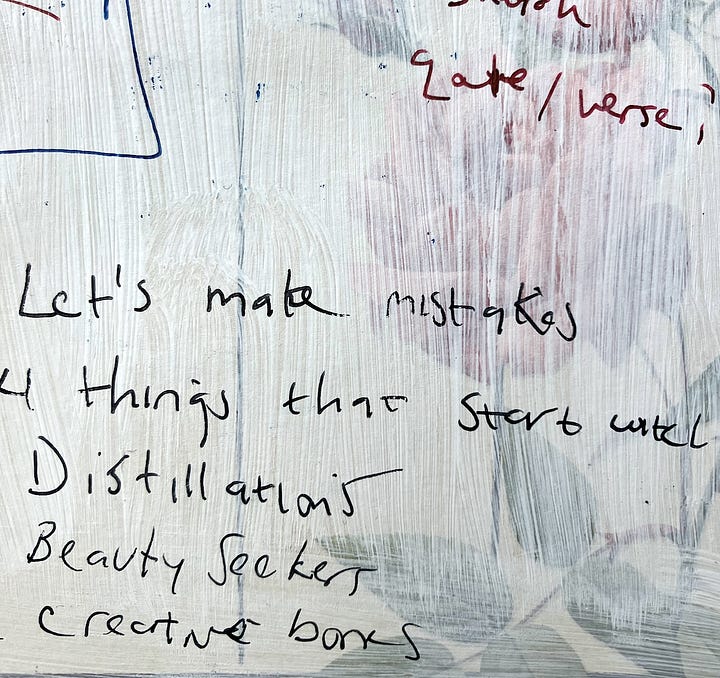 / verse,
Let's make mistakes
4 things that start with
Distillations
Beauty Seekers
creative bones